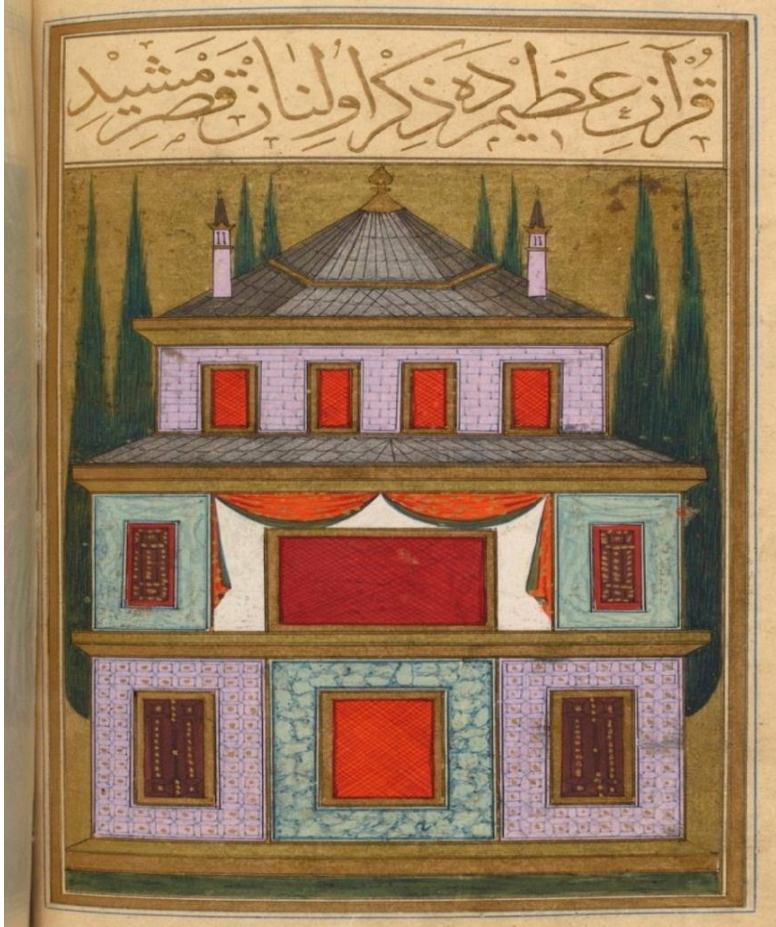 قُرْآنِ عَظِيمْدَه ذِكْر اوُلِنَانْ قَصْرِ مَشِيدِ